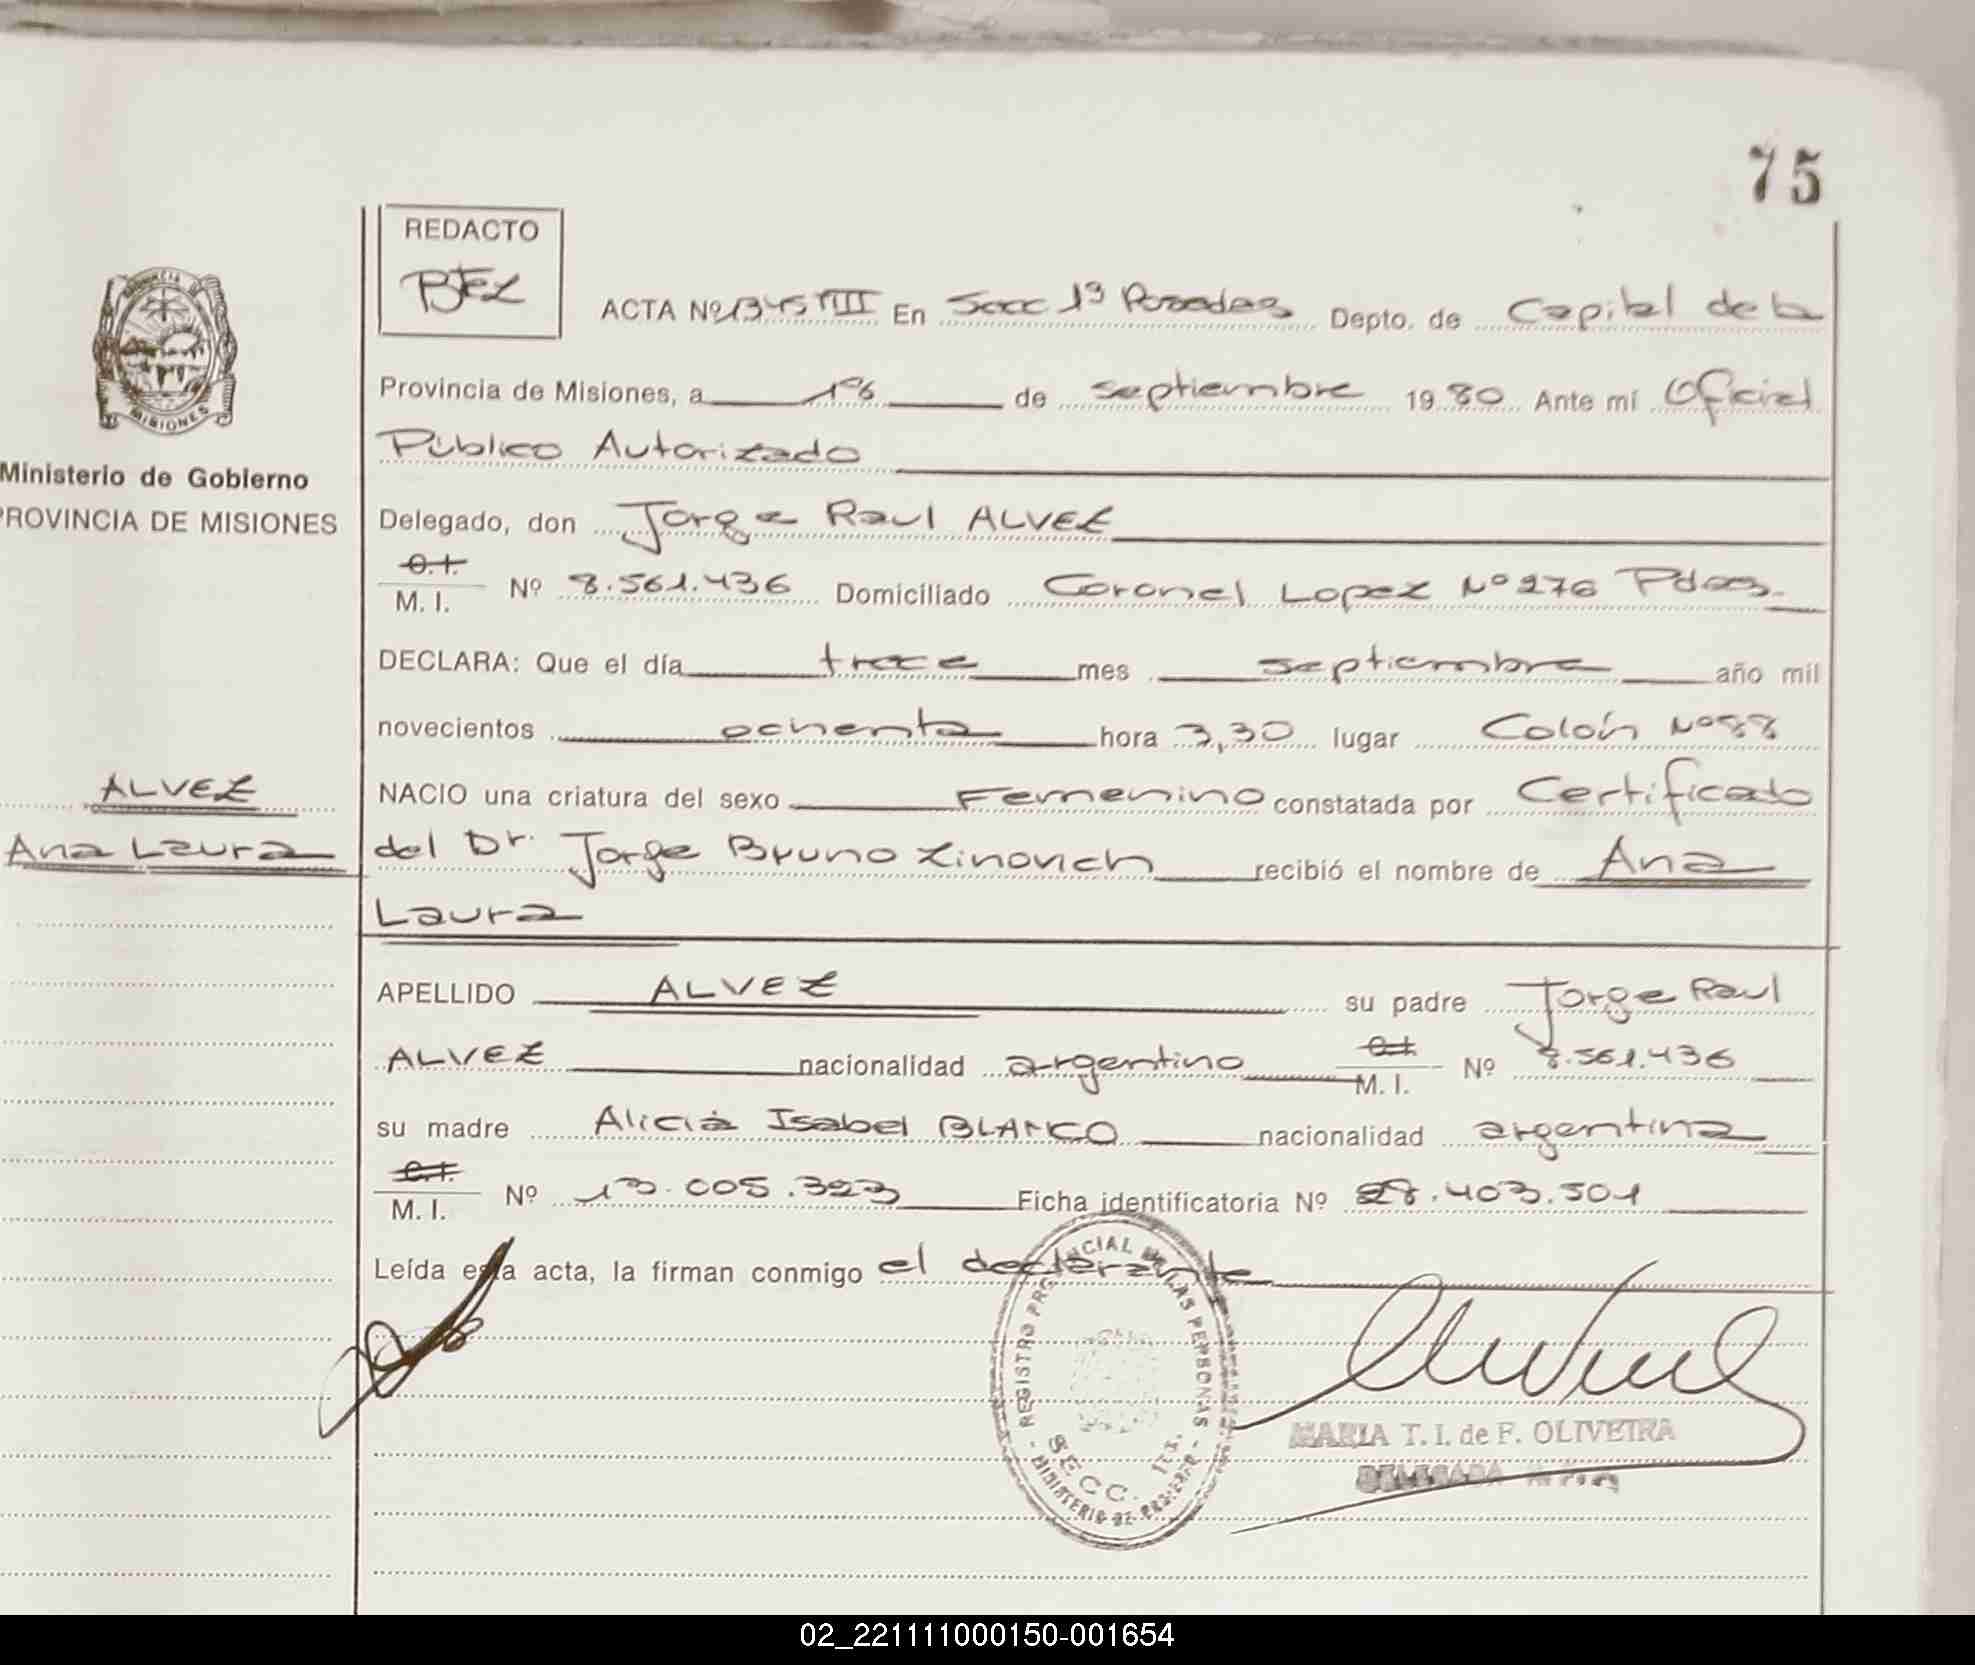 75
REDACTO
BFZ
ACTA Nº 1345 TIII En Secc 1ª Posadas Depto. de Capital de la
Provincia de Misiones, a 16 de septiembre 1980 Ante mí Oficial
Público Autorizado
Delegado, don Jorge Raul ALVEZ
C.I.
M. I. Nº 8.561.436 Domiciliado Coronel Lopez Nº 276 Pdas.
DECLARA: Que el día trece mes septiembre año mil
novecientos ochenta hora 3,30 lugar Colón Nº 88
NACIO una criatura del sexo Femenino constatada por Certificado
del Dr. Jorge Bruno Zinovich recibió el nombre de Ana
Laura
APELLIDO ALVEZ su padre Jorge Raul
ALVEZ nacionalidad argentino C.I.
M. I. Nº 8.561.436
su madre Alicia Isabel BLANCO nacionalidad argentina
C.I.
M. I. Nº 13.005.323 Ficha identificatoria Nº 28.403.501
Leída esta acta, la firman conmigo el declarante
PROVINCIA DE
MISIONES
Ministerio de Gobierno
PROVINCIA DE MISIONES
ALVEZ
Ana Laura
REGISTRO PROVINCIAL DE LAS PERSONAS
SECC. 1ra.
MINISTERIO DE
MARIA T. I. de F. OLIVEIRA
DELEGADA
02_221111000150-001654